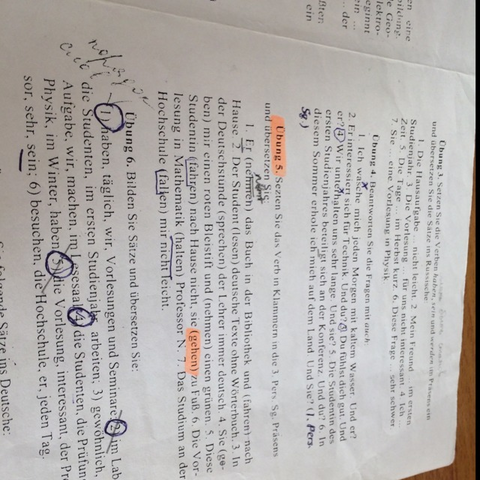 Übung 3. Setzen Sie die Verben haben, sein und werden im Präsens ein
und übersetzen Sie die Sätze ins Russische
1. Die Hausaufgabe ... nicht leicht. 2. Mein Freund ... im ersten
Studienjahr. 3. Die Vorlesung ... für uns nicht interessant. 4. Ich ...
Zeit. 5. Die Tage ... im Herbst kurz. 6. Diese Frage ... sehr schwer
7. Sie ... eine Vorlesung in Physik
Übung 4. Beantworten Sie die Fragen mit auch:
1. Ich wasche mich jeden Morgen mit kaltem Wasser. Und er?
2. Er interessiert sich für Technik. Und du? 3. Du fühlst dich gut. Und
er? 4. Wir unterhalten uns sehr lange. Und sie? 5. Die Studentin des
ersten Studienjahres beteiligt sich an der Konferenz. Und du? 6. In
diesem Sommer erhole ich mich auf dem Land. Und Sie? (1. Pers.
Sg.)
Übung 5. Setzen Sie das Verb in Klammern in die 3. Pers. Sg. Präsens
und übersetzen Sie
1. Er (nehmen) das Buch in der Bibliothek und (fahren) nach
Hause. 2. Der Student (lesen) deutsche Texte ohne Wörterbuch. 3. In
der Deutschstunde (sprechen) der Lehrer immer deutsch. 4. Sie (ge-
ben) mir einen roten Bleistift und (nehmen) einen grünen. 5. Diese
Studentin (fahren) nach Hause nicht, sie (gehen) zu Fuß. 6. Die Vor-
lesung in Mathematik (halten) Professor N. 7. Das Studium an der
Hochschule (fallen) mir nicht leicht.
Übung 6. Bilden Sie Sätze und übersetzen Sie:
1) haben, täglich, wir, Vorlesungen und Seminare; 2) im Lab
die Studenten, im ersten Studienjahr, arbeiten; 3) gewöhnlich,
Aufgabe, wir, machen, im Lesesaal; 4) die Studenten, die Prüfun
Physik, im Winter, haben; 5) die Vorlesung, interessant, der Pro
sor, sehr, sein; 6) besuchen, die Hochschule, er, jeden Tag.
Sie folgende Sätze ins Deutsche: